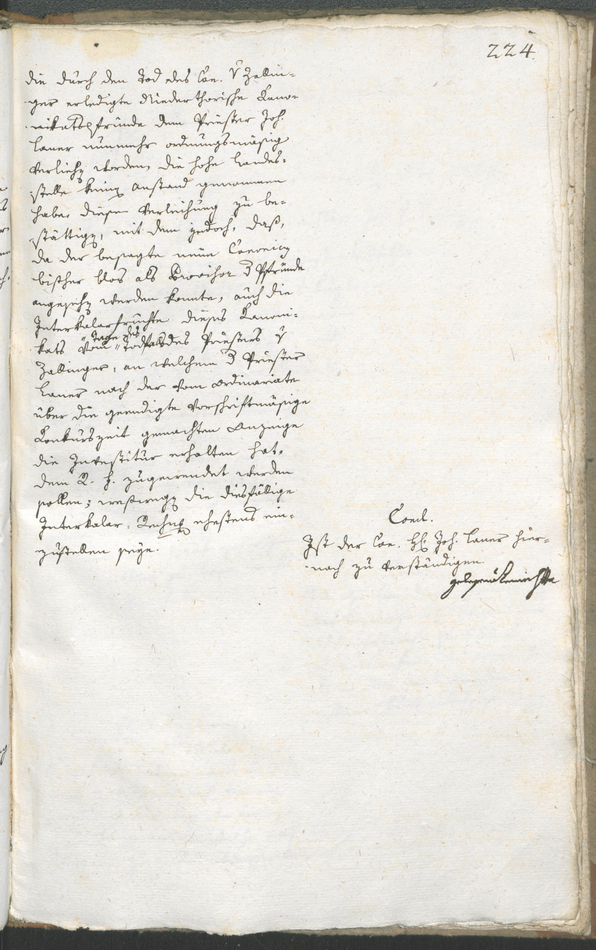 224.
die durch den Tod des Can. v Zallin-
ger erledigte Niederthorische Kano-
nikatspfründe dem Priester Joh.
Laner nunmehr ordnungsmäßig
verliehen worden, die hohe Landes-
stelle keinen Anstand genommen
habe, diese Verleihung zu be-
stättigen, mit dem jedoch, daß,
da der besagte neue Canonicus
bisher blos als Provisor d Pfründe
angesehen werden konnte, auch die
Interkalarfrüchte dieses Kanoni-
kats vom Tage des Todfalls des Priesters v
Zallinger, an welchem d Priester
Laner nach der vom Ordinariate
über die geendigte vorschriftmäßige
Konkurszeit gemachten Anzeige
die Investitur erhalten hat,
dem R. f. zugewendet werden
sollen; weswegen die diesfällige
Interkalar-Rechnung ehestens ein-
zustellen seye.
Concl.
Ist der Can. H Joh. Laner hier-
nach zu verständigen